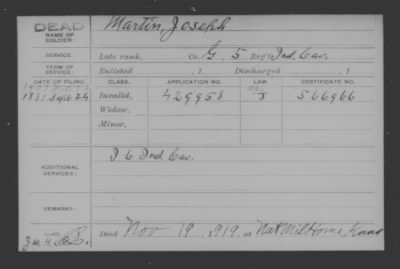 DEAD Martin, Joseph
NAME OF SOLDIER:
SERVICE: Late rank, Co. G. 5 Reg't Ind. Cav.
TERM OF SERVICE: Enlisted , 1 Discharged , 1
DATE OF FILING. CLASS. APPLICATION NO. LAW. CERTIFICATE NO.
1881 Sept 24 Invalid, 429958 J 566966
Widow,
Minor,
ADDITIONAL SERVICES: I 6 Ind. Cav.
REMARKS:
Died Nov 19, 1919, at Nat Mil Home Kans